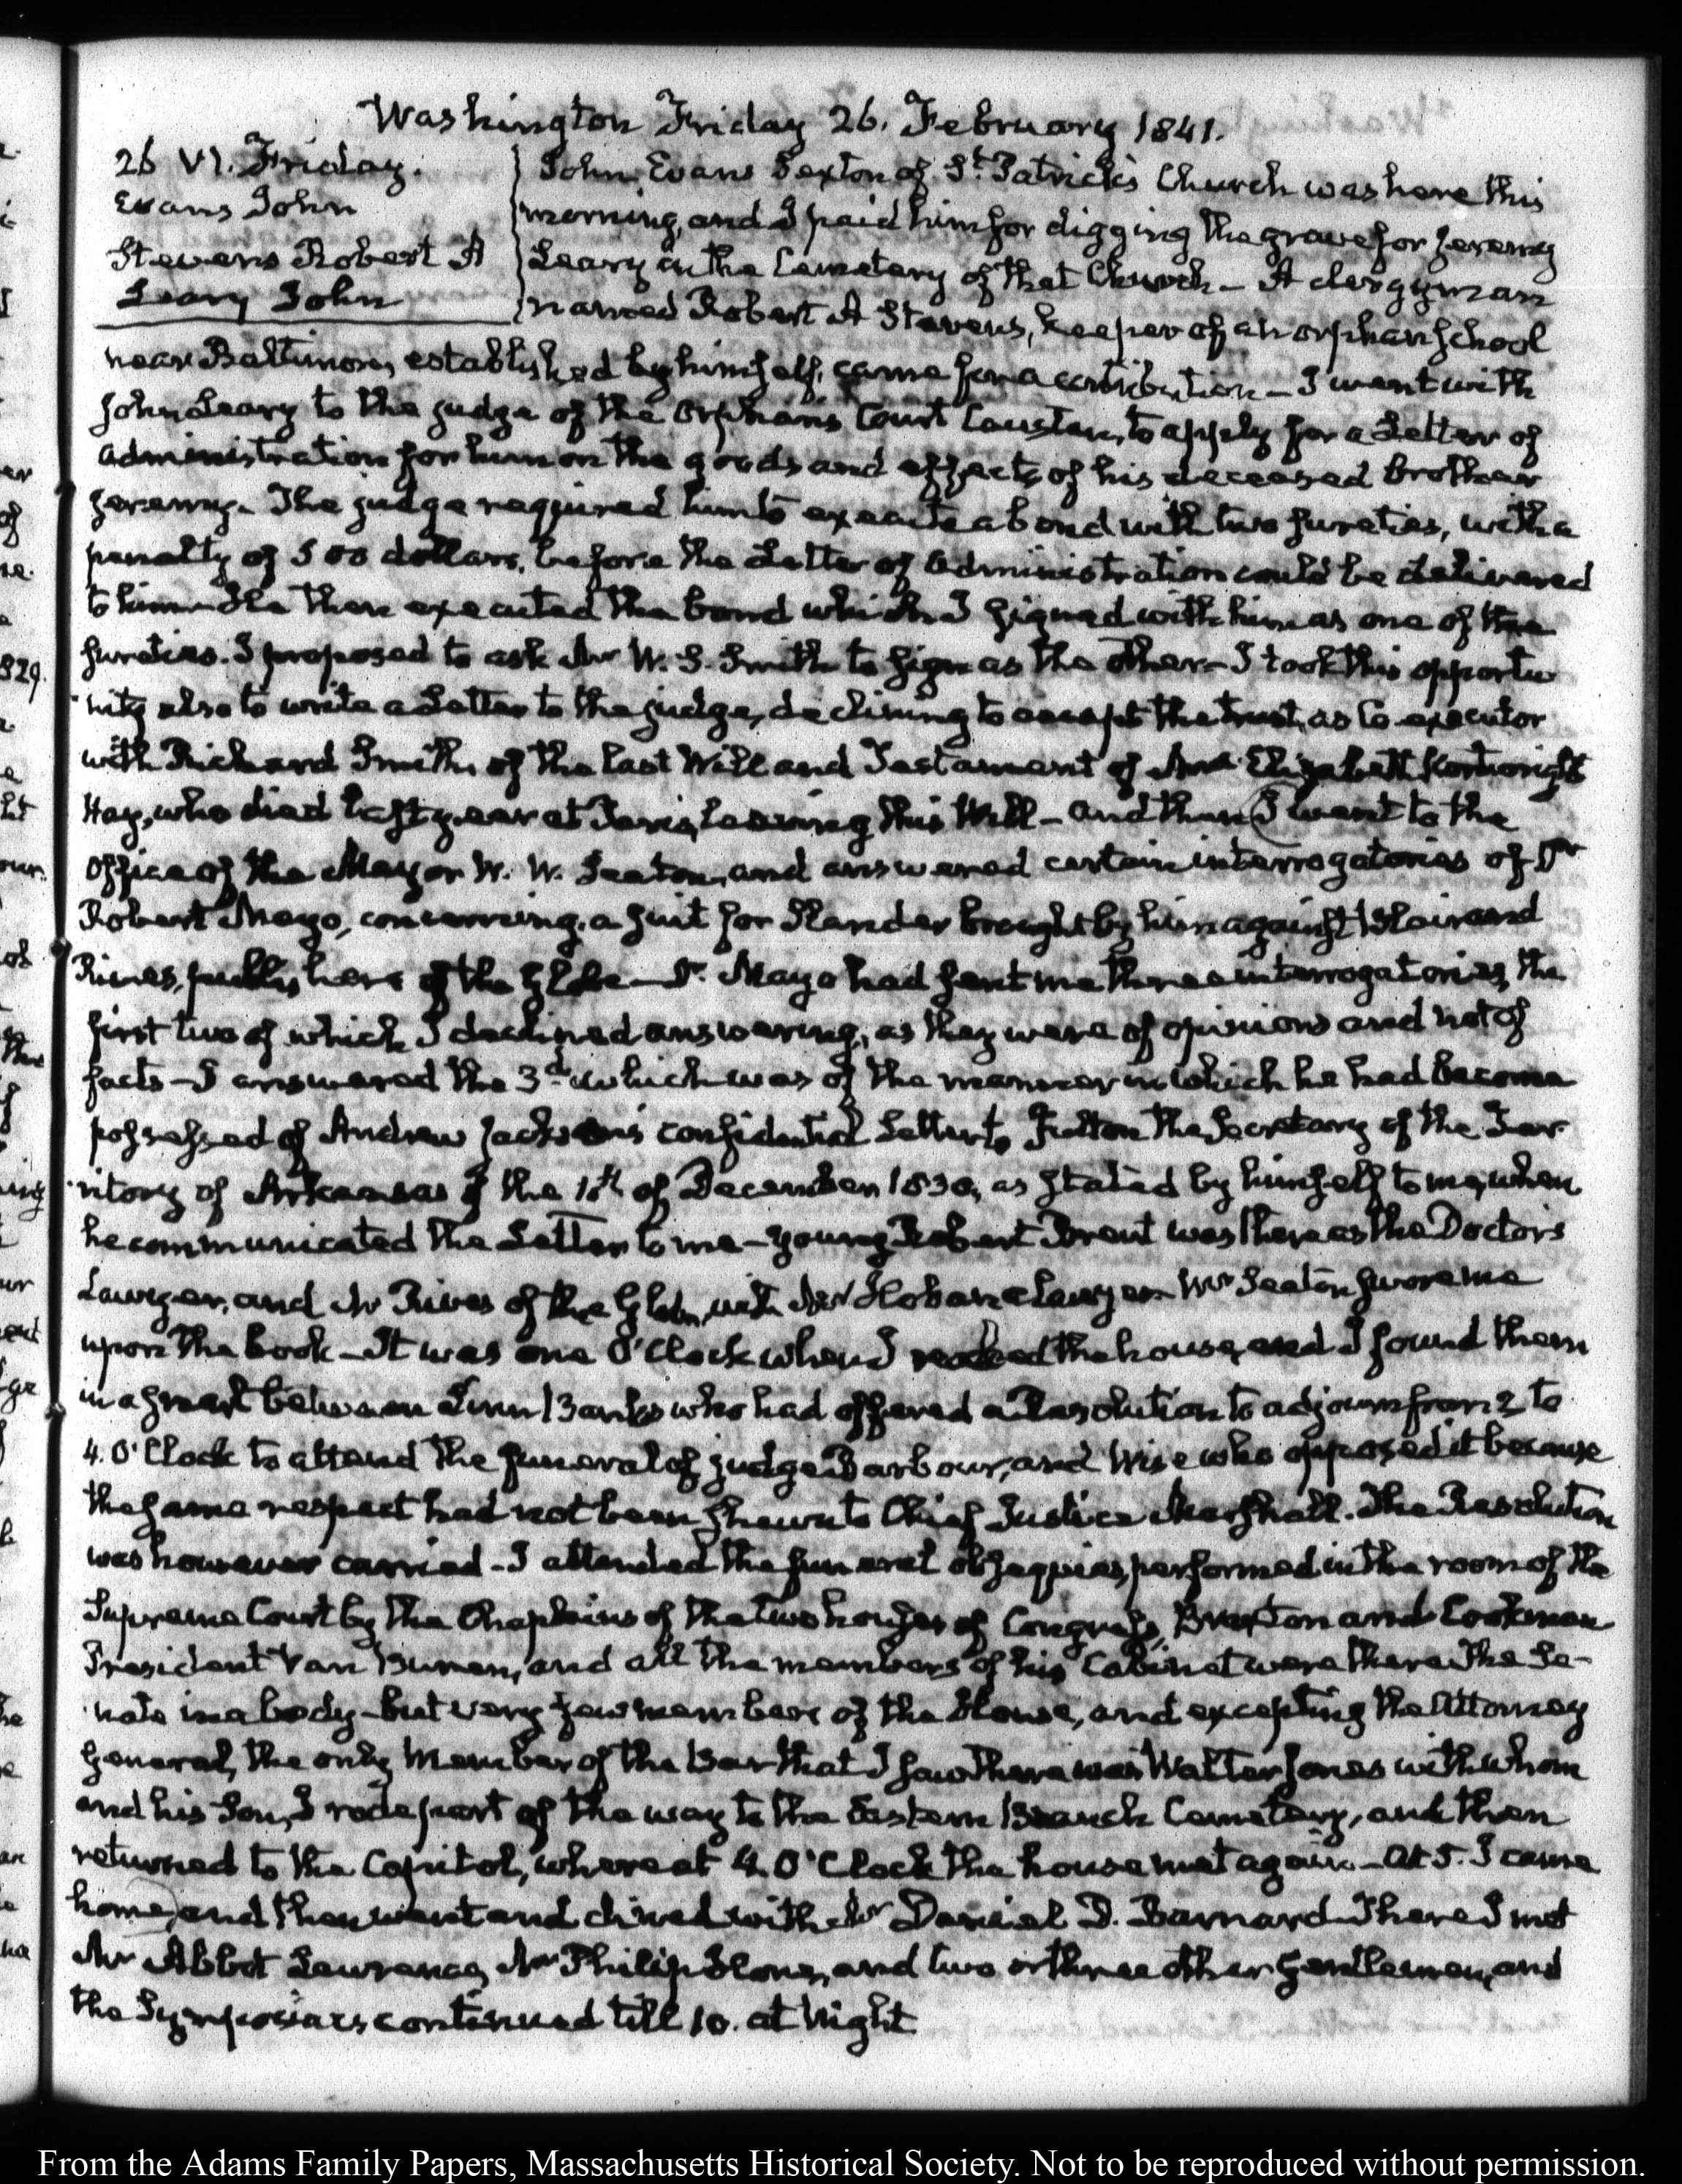 Washington Friday 26. February 1841.
26 VI. Friday.
Evans John
Stevens Robert A
Leary John
John Evans Sexton of St. Patrick's Church was here this
morning, and I paid him for digging the grave for Jeremy
Leary in the Cemetery of that Church — A clergyman
named Robert A Stevens, keeper of an orphan school
near Baltimore, established by himself, came for a contribution — I went with
John Leary to the judge of the Orphans Court Causten, to apply for a Letter of
administration for him on the goods and effects of his deceased brother
Jeremy. The judge required him to execute a bond with two sureties, with a
penalty of 500 dollars, before the Letter of Administration could be delivered
to him — He then executed the bond which I signed with him as one of the
sureties. I proposed to ask Mr W. S. Smith to sign as the other — I took this opportu
nity also to write a Letter to the judge, declining to accept the trust, as Co-executor
with Richard Smith, of the last Will and Testament of Mrs Elizabeth Kortright
Hay, who died last year at Paris, leaving this Will — and then I went to the
office of the Mayor W. W. Seaton, and answered certain interrogatories of Dr
Robert Mayo, concerning a suit for Slander brought by him against Blair and
Rives, publishers of the Globe — Dr. Mayo had sent me three interrogatories, the
first two of which I declined answering, as they were of opinions and not of
facts — I answered the 3d. which was of the manner in which he had become
possessed of Andrew Jackson's confidential Letter to Fulton the Secretary of the Ter-
ritory of Arkansas of the 10th of December 1830, as stated by himself to me, when
he communicated the Letter to me — young Robert Brent was there as the Doctor's
Lawyer, and Mr Rives of the Globe, with Mr Hoban a lawyer Mr Seaton swore me
upon the book — It was one O'Clock when I reached the house, and I found them
in a snarl between Linn Banks who had offered a Resolution to adjourn from 2 to
4. O'Clock to attend the funeral of judge Barbour, and Wise who opposed it because
the same respect had not been shewn to Chief Justice Marshall. The Resolution
was however carried — I attended the funeral obsequies, performed in the room of the
Supreme Court by the Chaplains of the two houses of Congress, Braxton and Cookman
President Van Buren, and all the members of his Cabinet were there The Se-
nate in a body — but very few members of the House, and excepting the Attorney
General, the only Member of the Bar that I saw there was Walter Jones with whom
and his Son, I rode part of the way to the Eastern Branch Cemetery, and then
returned to the Capitol, where at 4. O'Clock the house met again — At 5. I came
home, and then went and dined with Mr Daniel D. Barnard There I met
Mr Abbot Lawrence, Mr Philip Hone, and two or three other Gentlemen, and
the Symposiars continued till 10. at Night
From the Adams Family Papers, Massachusetts Historical Society. Not to be reproduced without permission.